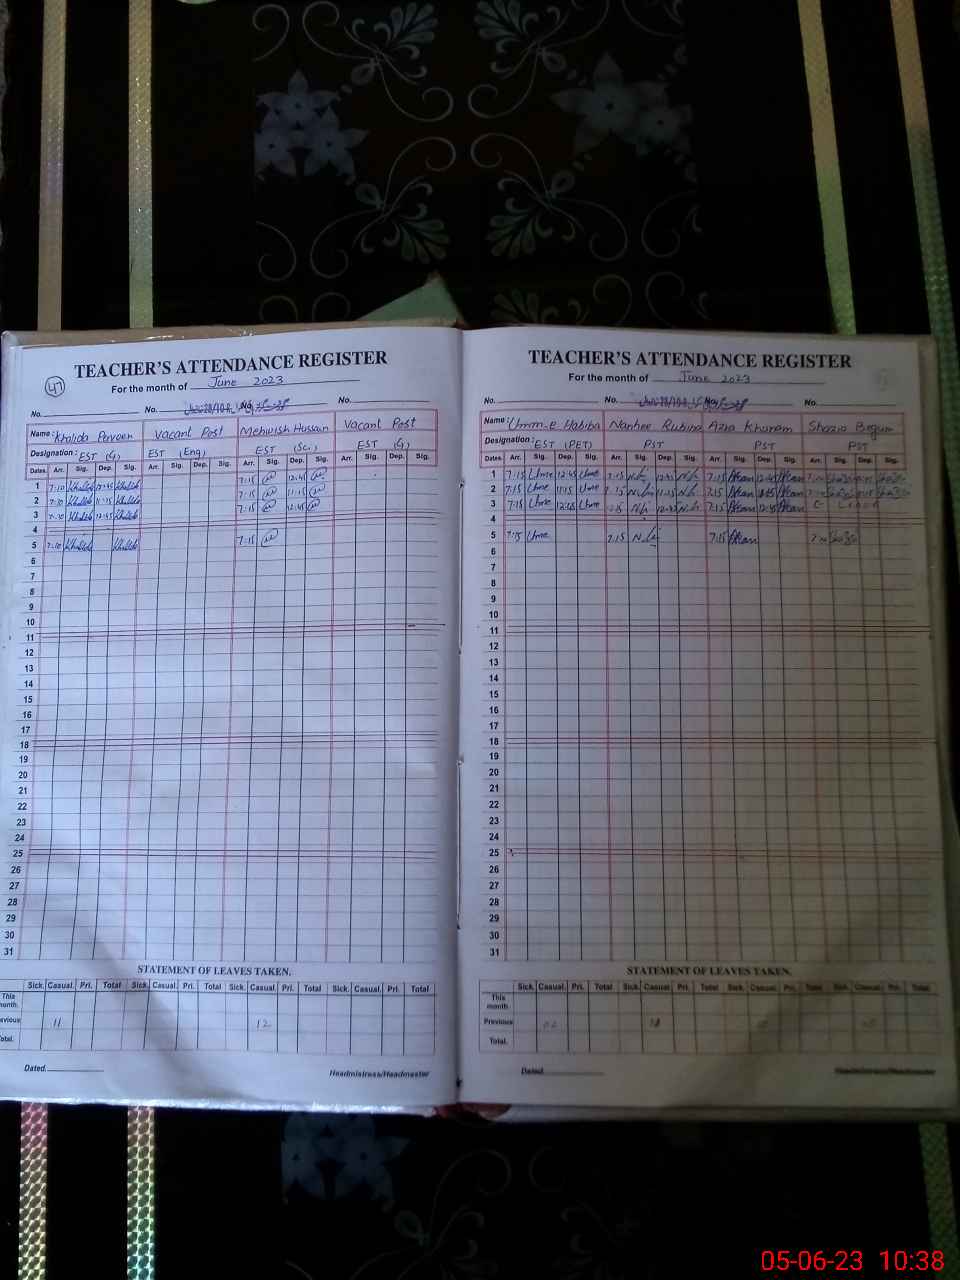 TEACHER'S ATTENDANCE REGISTER
47
For the month of June 2023
No. No. No. No.
Name: Khalida Parveen Vacant Post Mehwish Hussain Vacant Post
Designation: EST (G) EST (Eng) EST (Sc.) EST (G)
Dates Arr. Sig. Dep. Sig. Arr. Sig. Dep. Sig. Arr. Sig. Dep. Sig. Arr. Sig. Dep. Sig.
1 7:10 Khalida 12:45 Khalida 7:15 12:45
2 7:10 Khalida 11:15 Khalida 7:15 11:15
3 7:10 Khalida 12:45 Khalida 7:15 12:45
4
5 7:10 Khalida Khalida 7:15
6
7
8
9
10
11
12
13
14
15
16
17
18
19
20
21
22
23
24
25
26
27
28
29
30
31
STATEMENT OF LEAVES TAKEN.
Sick. Casual. Pri. Total Sick. Casual. Pri. Total Sick. Casual. Pri. Total Sick. Casual. Pri. Total
This month.
Previous 11 12
Total.
Dated.
Headmistress/Headmaster
TEACHER'S ATTENDANCE REGISTER
For the month of June 2023
No. No. No.
Name: Umm-e Habiba Nanhee Rubina Azra Khanam Shazia Begum
Designation: EST (PET) PST PST PST
Dates Arr. Sig. Dep. Sig. Arr. Sig. Dep. Sig. Arr. Sig. Dep. Sig. Arr. Sig. Dep. Sig.
1 7:15 Ume 12:45 Ume 7:15 12:45 7:15 12:45
2 7:15 Ume 11:15 Ume 7:15 11:15 7:15 11:15
3 7:15 Ume 12:45 Ume 7:15 12:45 7:15 12:45
4
5 7:15 Ume 7:15 7:15
6
7
8
9
10
11
12
13
14
15
16
17
18
19
20
21
22
23
24
25
26
27
28
29
30
31
STATEMENT OF LEAVES TAKEN.
Sick. Casual. Pri. Total Sick. Casual. Pri. Total Sick. Casual. Pri. Total Sick. Casual. Pri. Total
This month.
Previous
Total.
Dated.
Headmistress/Headmaster
05-06-23 10:38